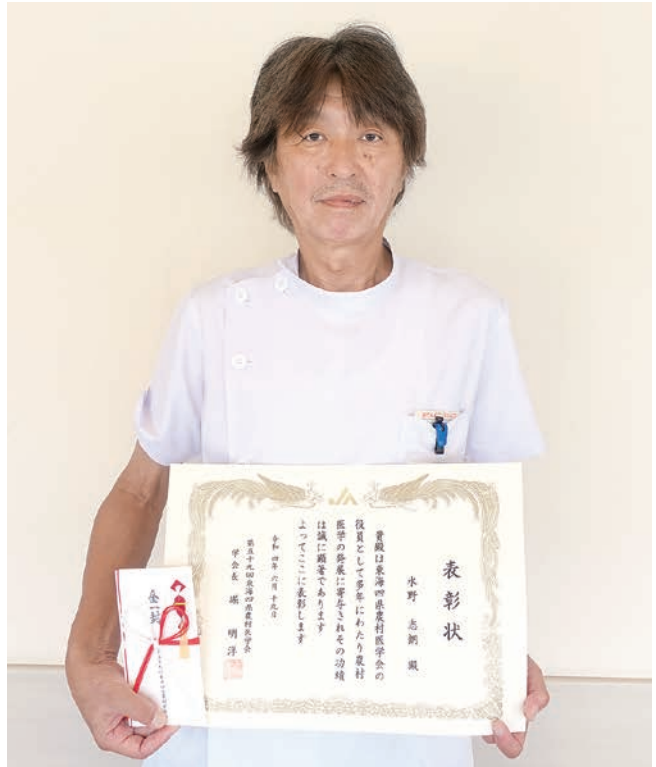 表彰状
水野 志朗 殿
貴殿は東海四県農村医学会の
役員として多年にわたり農村
医学の発展に寄与されその功績
は誠に顕著であります
よってここに表彰します
令和四年 六月 十九日
第五十九回東海四県農村医学会
学会長 堀 明洋
金一封